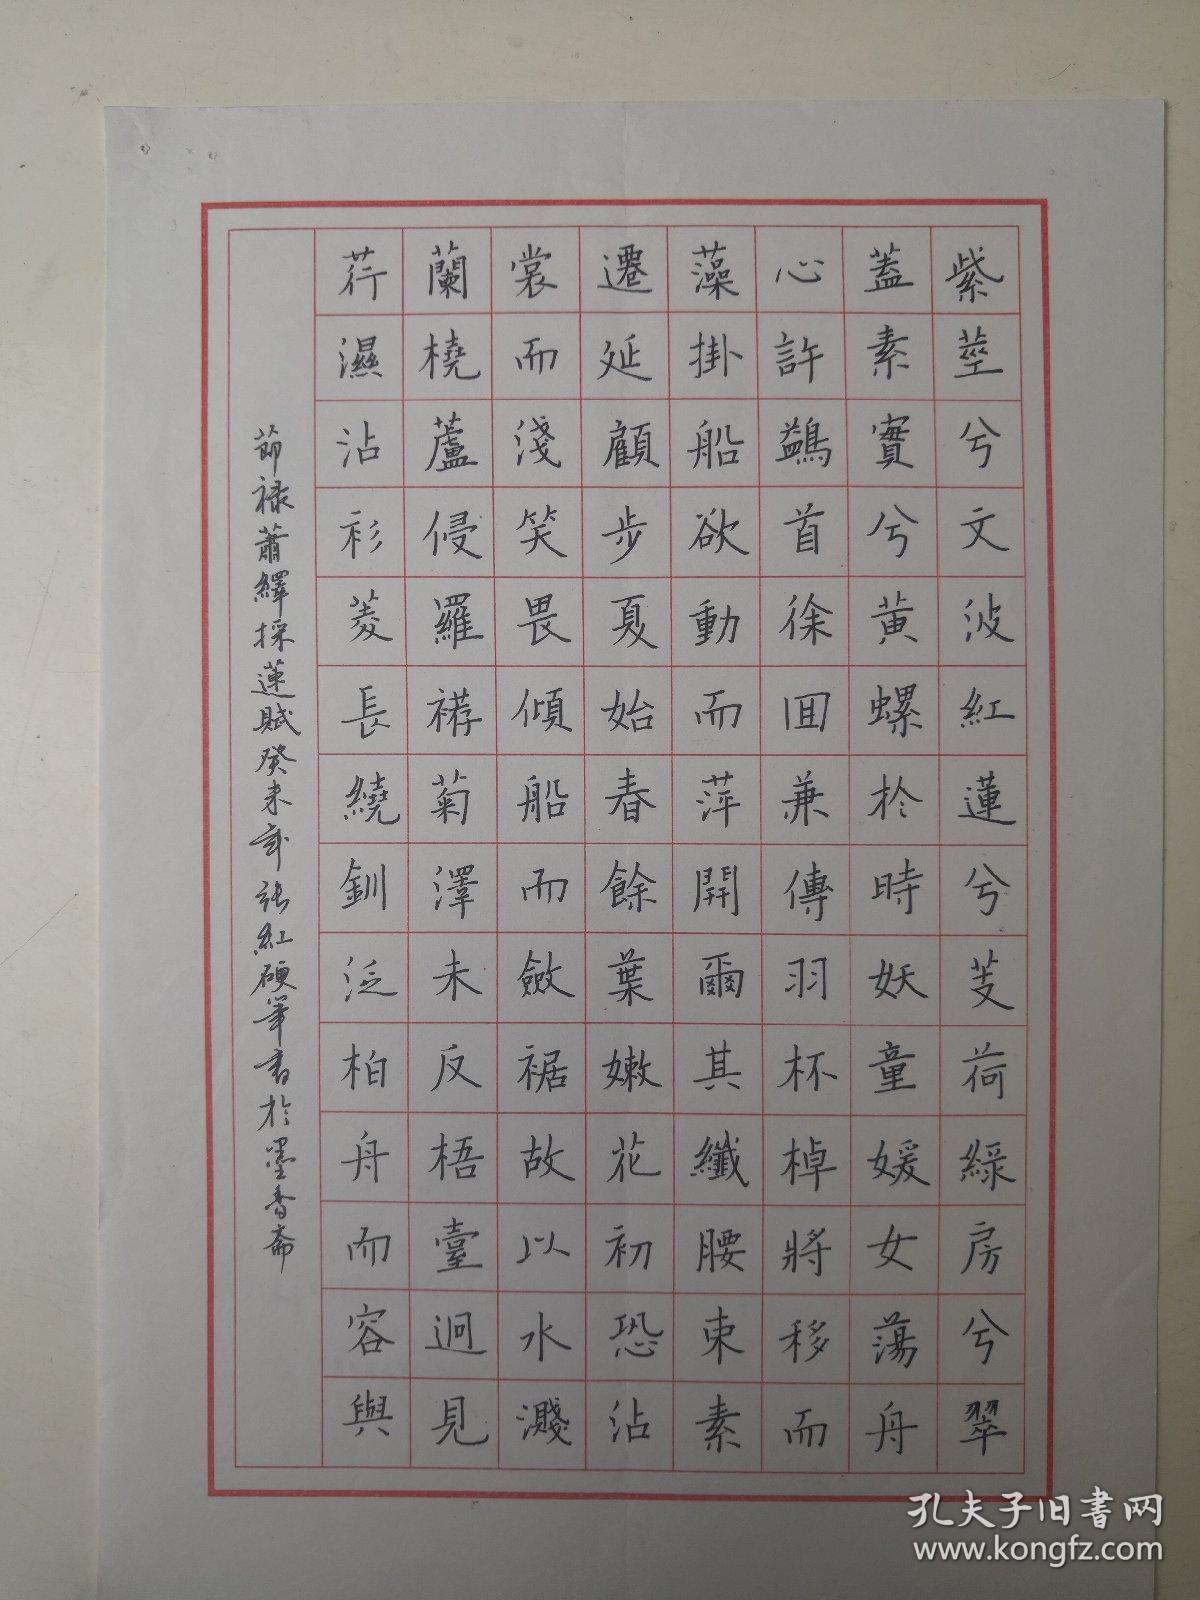 紫莖兮文波紅蓮兮芰荷綠房兮翠
蓋素實兮黃螺於時妖童媛女蕩舟
心許鷁首徐囬兼傳羽杯棹將移而
藻掛船欲動而萍開爾其纖腰束素
遷延顧步夏始春餘葉嫩花初恐沾
裳而淺笑畏傾船而斂裾故以水濺
蘭橈蘆侵羅䙓菊澤未反梧臺迥見
荇濕沾衫菱長繞釧泛柏舟而容與
節禄蕭繹採蓮賦癸未年張紅硬筆書於墨香齋
孔夫子旧書网
www.kongfz.com